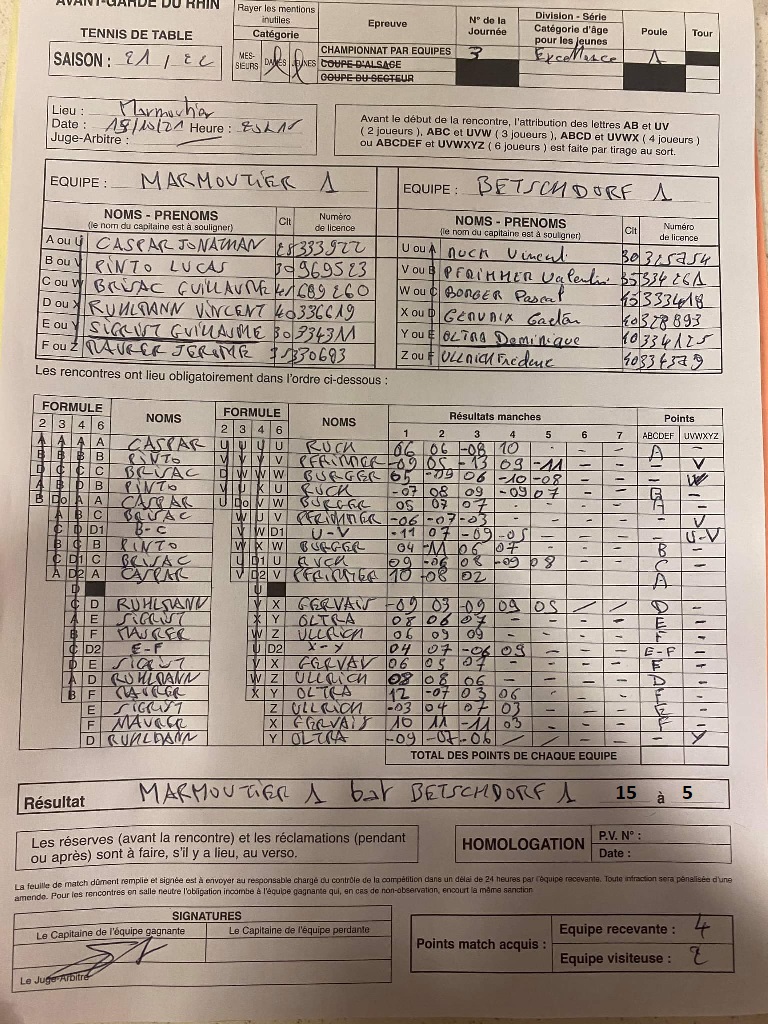 AVANT-GARDE DU RHIN
TENNIS DE TABLE
SAISON : 21 / 22
Rayer les mentions inutiles
Catégorie
MES-SIEURS DAMES JEUNES
Epreuve
CHAMPIONNAT PAR EQUIPES
COUPE D'ALSACE
COUPE DU SECTEUR
N° de la Journée
3
Division - Série
Catégorie d'âge pour les jeunes
Excellence
Poule
A
Tour
Lieu : Marmoutier
Date : 15/10/21 Heure : 20H15
Juge-Arbitre :
Avant le début de la rencontre, l'attribution des lettres AB et UV
( 2 joueurs ), ABC et UVW ( 3 joueurs ), ABCD et UVWX ( 4 joueurs )
ou ABCDEF et UVWXYZ ( 6 joueurs ) est faite par tirage au sort.
EQUIPE : MARMOUTIER 1
EQUIPE : BETSCHDORF 1
NOMS - PRENOMS (le nom du capitaine est à souligner) Clt Numéro de licence
A ou U CASPAR JONATHAN
B ou V PINTO LUCAS 30 969523
C ou W BRISAC GUILLAUME 45 689260
D ou X RUHLMANN VINCENT 40 336619
E ou Y SIGRIST GUILLAUME 30 334311
F ou Z MAURER JEROME 35 330683
NOMS - PRENOMS (le nom du capitaine est à souligner) Clt Numéro de licence
U ou A RUCH Vincent 30
V ou B PFRIMMER Valentin 35 334261
W ou C BURGER Pascal 45 333418
X ou D GERVAIX Gaetan 40 328893
Y ou E OLTRA Dominique 40 334125
Z ou F ULLRICH Frédéric 40 334379
Les rencontres ont lieu obligatoirement dans l'ordre ci-dessous :
FORMULE NOMS FORMULE NOMS Résultats manches Points
2 3 4 6 2 3 4 6 1 2 3 4 5 6 7 ABCDEF UVWXYZ
A CASPAR U RUCH 06 06 -08 10 - - - A
B PINTO V PFRIMMER -09 05 -13 09 -11 - - - V
C BRISAC W BURGER 05 -09 06 -10 -08 - - - W
B PINTO U RUCK -07 08 09 -09 07 - - B
A CASPAR W BURGER 05 07 07 - - - A
C BRISAC V PFRIMMER -06 -07 -03 - V
D1 B-C D1 U-V -11 07 -09 -05 - - - U-V
B PINTO W BURGER 04 -11 06 07 - - B
C BRISAC U RUCH 09 -06 08 -09 08 - - C
A CASPAR V PFRIMMER 10 -08 02 A
D RUHLMANN X GERVAIS -09 03 -09 09 05 / / D
E SIGRIST Y OLTRA 08 06 07 - - - E
F MAURER Z ULLRICH 06 09 09 - - - F
D2 E-F D2 X-Y 04 07 -06 09 - - - E-F
E SIGRIST X GERVAI 06 05 07 - - - E
D RUHLMANN Z ULLRICH 08 08 06 - - - - D
F MAURER Y OLTRA 12 -07 03 06 - - - F
E SIGRIST Z ULLRICH -03 04 07 03 - - - E
F MAURER X GERVAIS 10 11 -11 03 - - - F
D RUHLMANN Y OLTRA -09 -07 -06 / / - - - Y
TOTAL DES POINTS DE CHAQUE EQUIPE
Résultat MARMOUTIER 1 bat BETSCHDORF 1 15 à 5
Les réserves (avant la rencontre) et les réclamations (pendant
ou après) sont à faire, s'il y a lieu, au verso.
HOMOLOGATION
P.V. N° :
Date :
La feuille de match dûment remplie et signée est à envoyer au responsable chargé du contrôle de la compétition dans un délai de 24 heures par l'équipe recevante. Toute infraction sera pénalisée d'une
amende. Pour les rencontres en salle neutre l'obligation incombe à l'équipe gagnante qui, en cas de non-observation, encourt la même sanction
SIGNATURES
Le Capitaine de l'équipe gagnante Le Capitaine de l'équipe perdante
Le Juge-Arbitre
Points match acquis :
Equipe recevante : 4
Equipe visiteuse : 2